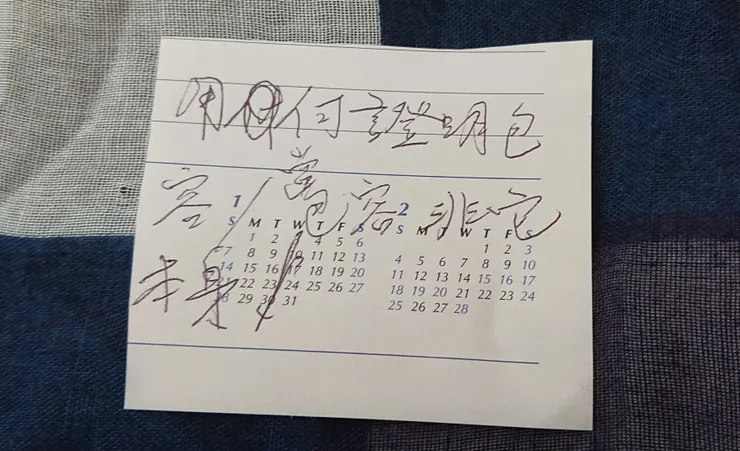 用何證明包
容/當包容非它
1
S M T W T F S
1 2 4 5 6
7 8 9 10 11 12 13
14 15 16 17 18 19 20
21 22 23 24 25 26 27
28 29 30 31
2
S M T W T F S
1 2 3
4 5 6 7 8 9 10
11 12 13 14 15 16 17
18 19 20 21 22 23 24
25 26 27 28
本身/